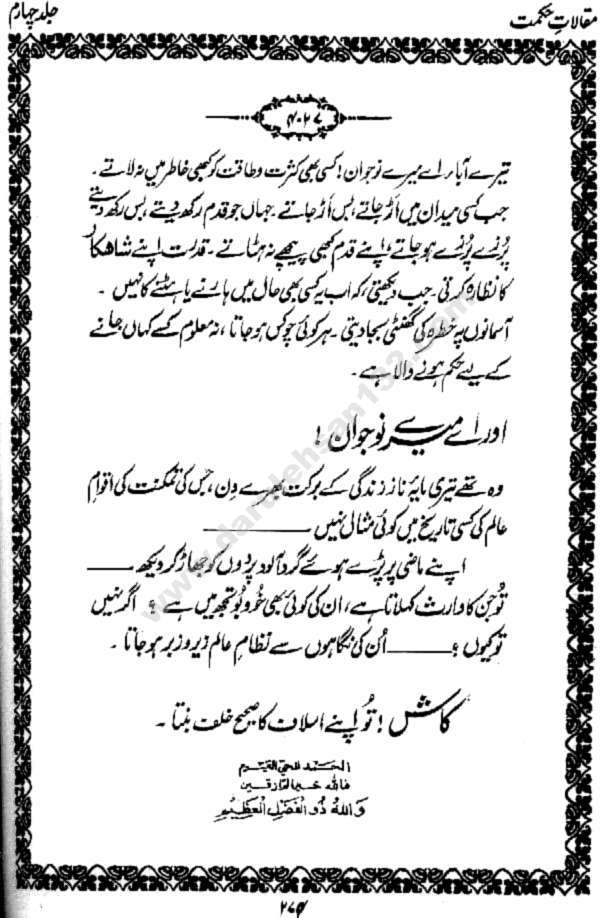 مقالاتِ حکمت
جلد چہارم
۴۰۲۷
تیرے آباء اے میرے نوجوان! کسی بھی کثرت و طاقت کو کبھی خاطر میں نہ لاتے۔
جب کسی میدان میں اُڑ جاتے، بس اُڑ جاتے۔ جہاں جو قدم رکھ دیتے، بس رکھ دیتے
پُرزے پُرزے ہو جاتے، اپنے قدم کبھی پیچھے نہ ہٹاتے۔ قدرت اپنے شاہکار
کا نظارہ کرتی۔ جب دیکھتی، کہ اب یہ کسی بھی حال میں ہارنے یا ہٹنے کا نہیں۔
آسمانوں پہ خطرہ کی گھنٹی بجا دیتی۔ ہر کوئی چوکس ہو جاتا، نہ معلوم کسے کہاں جانے
کے لیے حکم ہونے والا ہے۔
اور اے میرے نوجوان!
وہ تھے تیری مایۂ ناز زندگی کے برکت بھرے دن، جس کی تمکنت کی اقوامِ
عالم کی کسی تاریخ میں کوئی مثال نہیں ــــــــــ
اپنے ماضی پر پڑے ہوئے گرد آلود پردوں کو جھاڑ کر دیکھ ــــــــ
تُو جن کا وارث کہلاتا ہے، ان کی کوئی بھی خُو و بُو تجھ میں ہے؟ اگر نہیں
تو کیوں؟ ــــــــ اُن کی نگاہوں سے نظامِ عالم زیر و زبر ہو جاتا۔
کاش! تُو اپنے اسلاف کا صحیح خلف بنتا۔
الحمد للحی القیوم
فاللہ خیر الرازقین
وَاللهُ ذُو الْفَضْلِ الْعَظِيْمِ
۲۷۴
www.darulehsan132.com